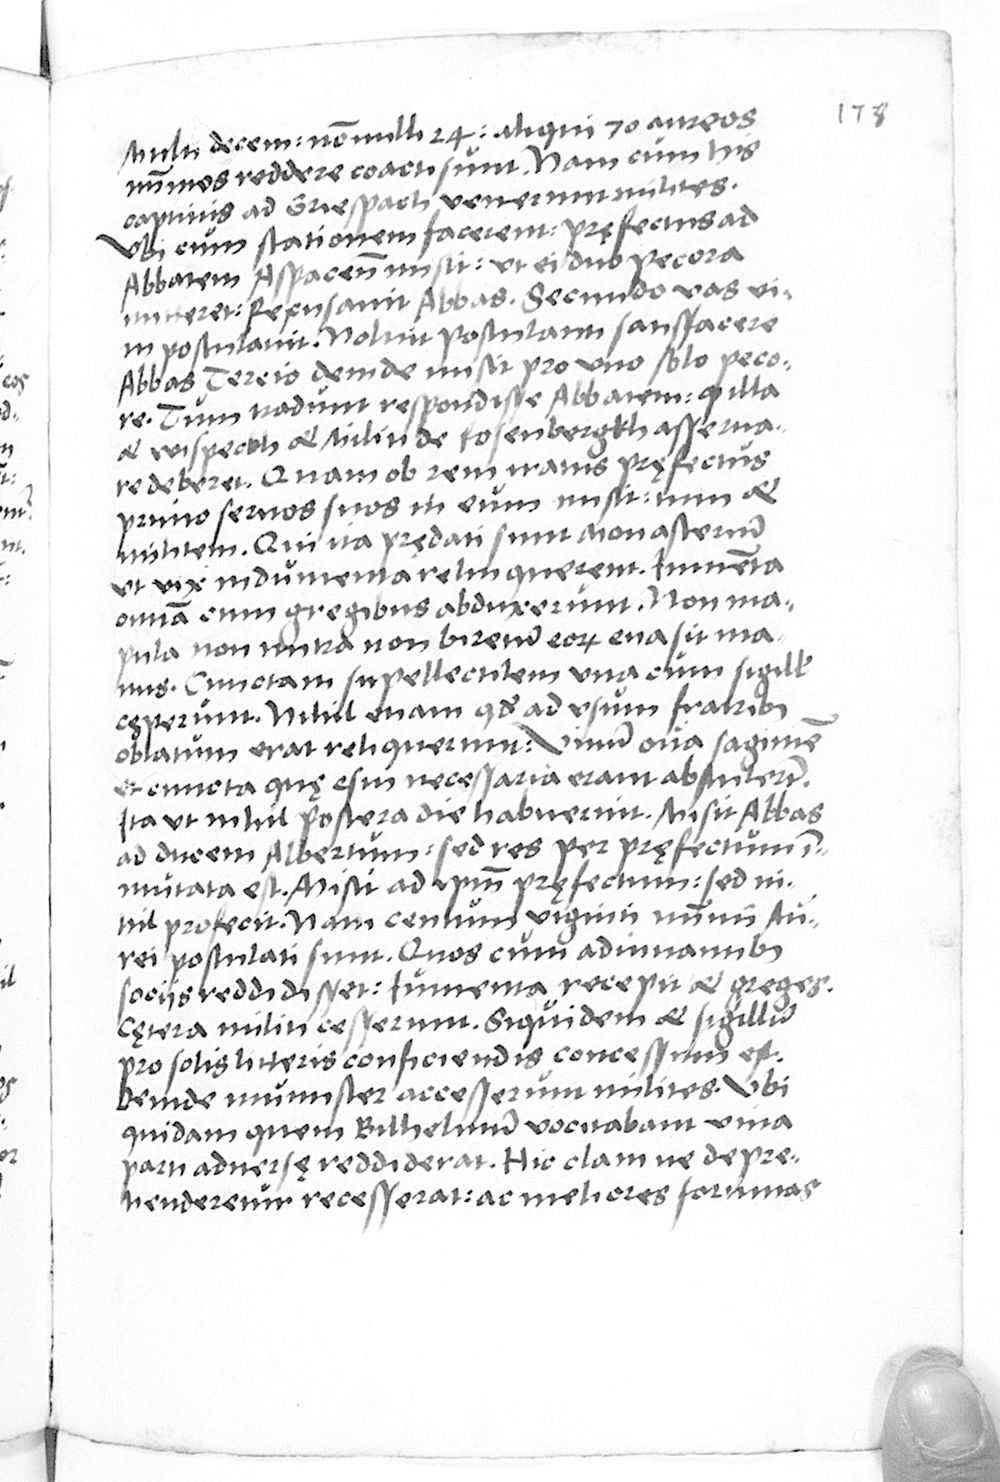 178
Multi decem: nōnulli 24: aliqui 70 aureos
nūmos reddere coacti sunt. Nam cum his
captiuis ad Griespach venerunt milites.
Vbi cum stationem facerent: pręfectus ad
Abbatem Aspacenᷠ misit: vt ei duo pecora
mitteret: Recusauit Abbas. Secundo vas vi-
ni postulauit. Noluit postulanti satisfacere
Abbas Tercio deinde misit pro vno solo peco-
re. Tum tradunt respondisse Abbatem: ꝙ illa
et militi de Rosenbergkh asserua-
re deberet. Quam ob rem iratus pręfectus
primo seruos suos in eum misit: tum et
militem. Qui ita prędati sunt Monasteriū
vt vix indumenta relinquerent. Iumēta
omīa cum gregibus abduxerunt. Non ma-
pula non mitra non biretū eoꝝ euasit ma-
nus. Cunctam supellectilem vna cum sigill
cęperunt. Nihil etiam qđ ad vsum fratribꝫ
oblatum erat reliquerunt: Vinū oua sagimē
et cuncta quę esui necessaria erant abstulerūt.
Ita vt nihil postera die habuerint. Misit Abbas
ad ducem Albertum: sed res per pręfectum ī-
mutata est. Misit ad ipm̄ pręfectum: sed ni-
hil profecit. Nam centum viginti nūmi Au-
rei postulati sunt. Quos cum adiuuantibꝫ
socijs reddidisset: Iumenta recepit et greges.
Cętera militi cesserunt. Siquidem et sigillū
pro solis litteris conficiendis concessum est.
Deinde munster accesserunt milites. Vbi
quidam quem Bilhelmū vocitabant vina
parti aduersę reddiderat. Hic clam ne depre-
henderetur recesserat: ac meliores fortunas